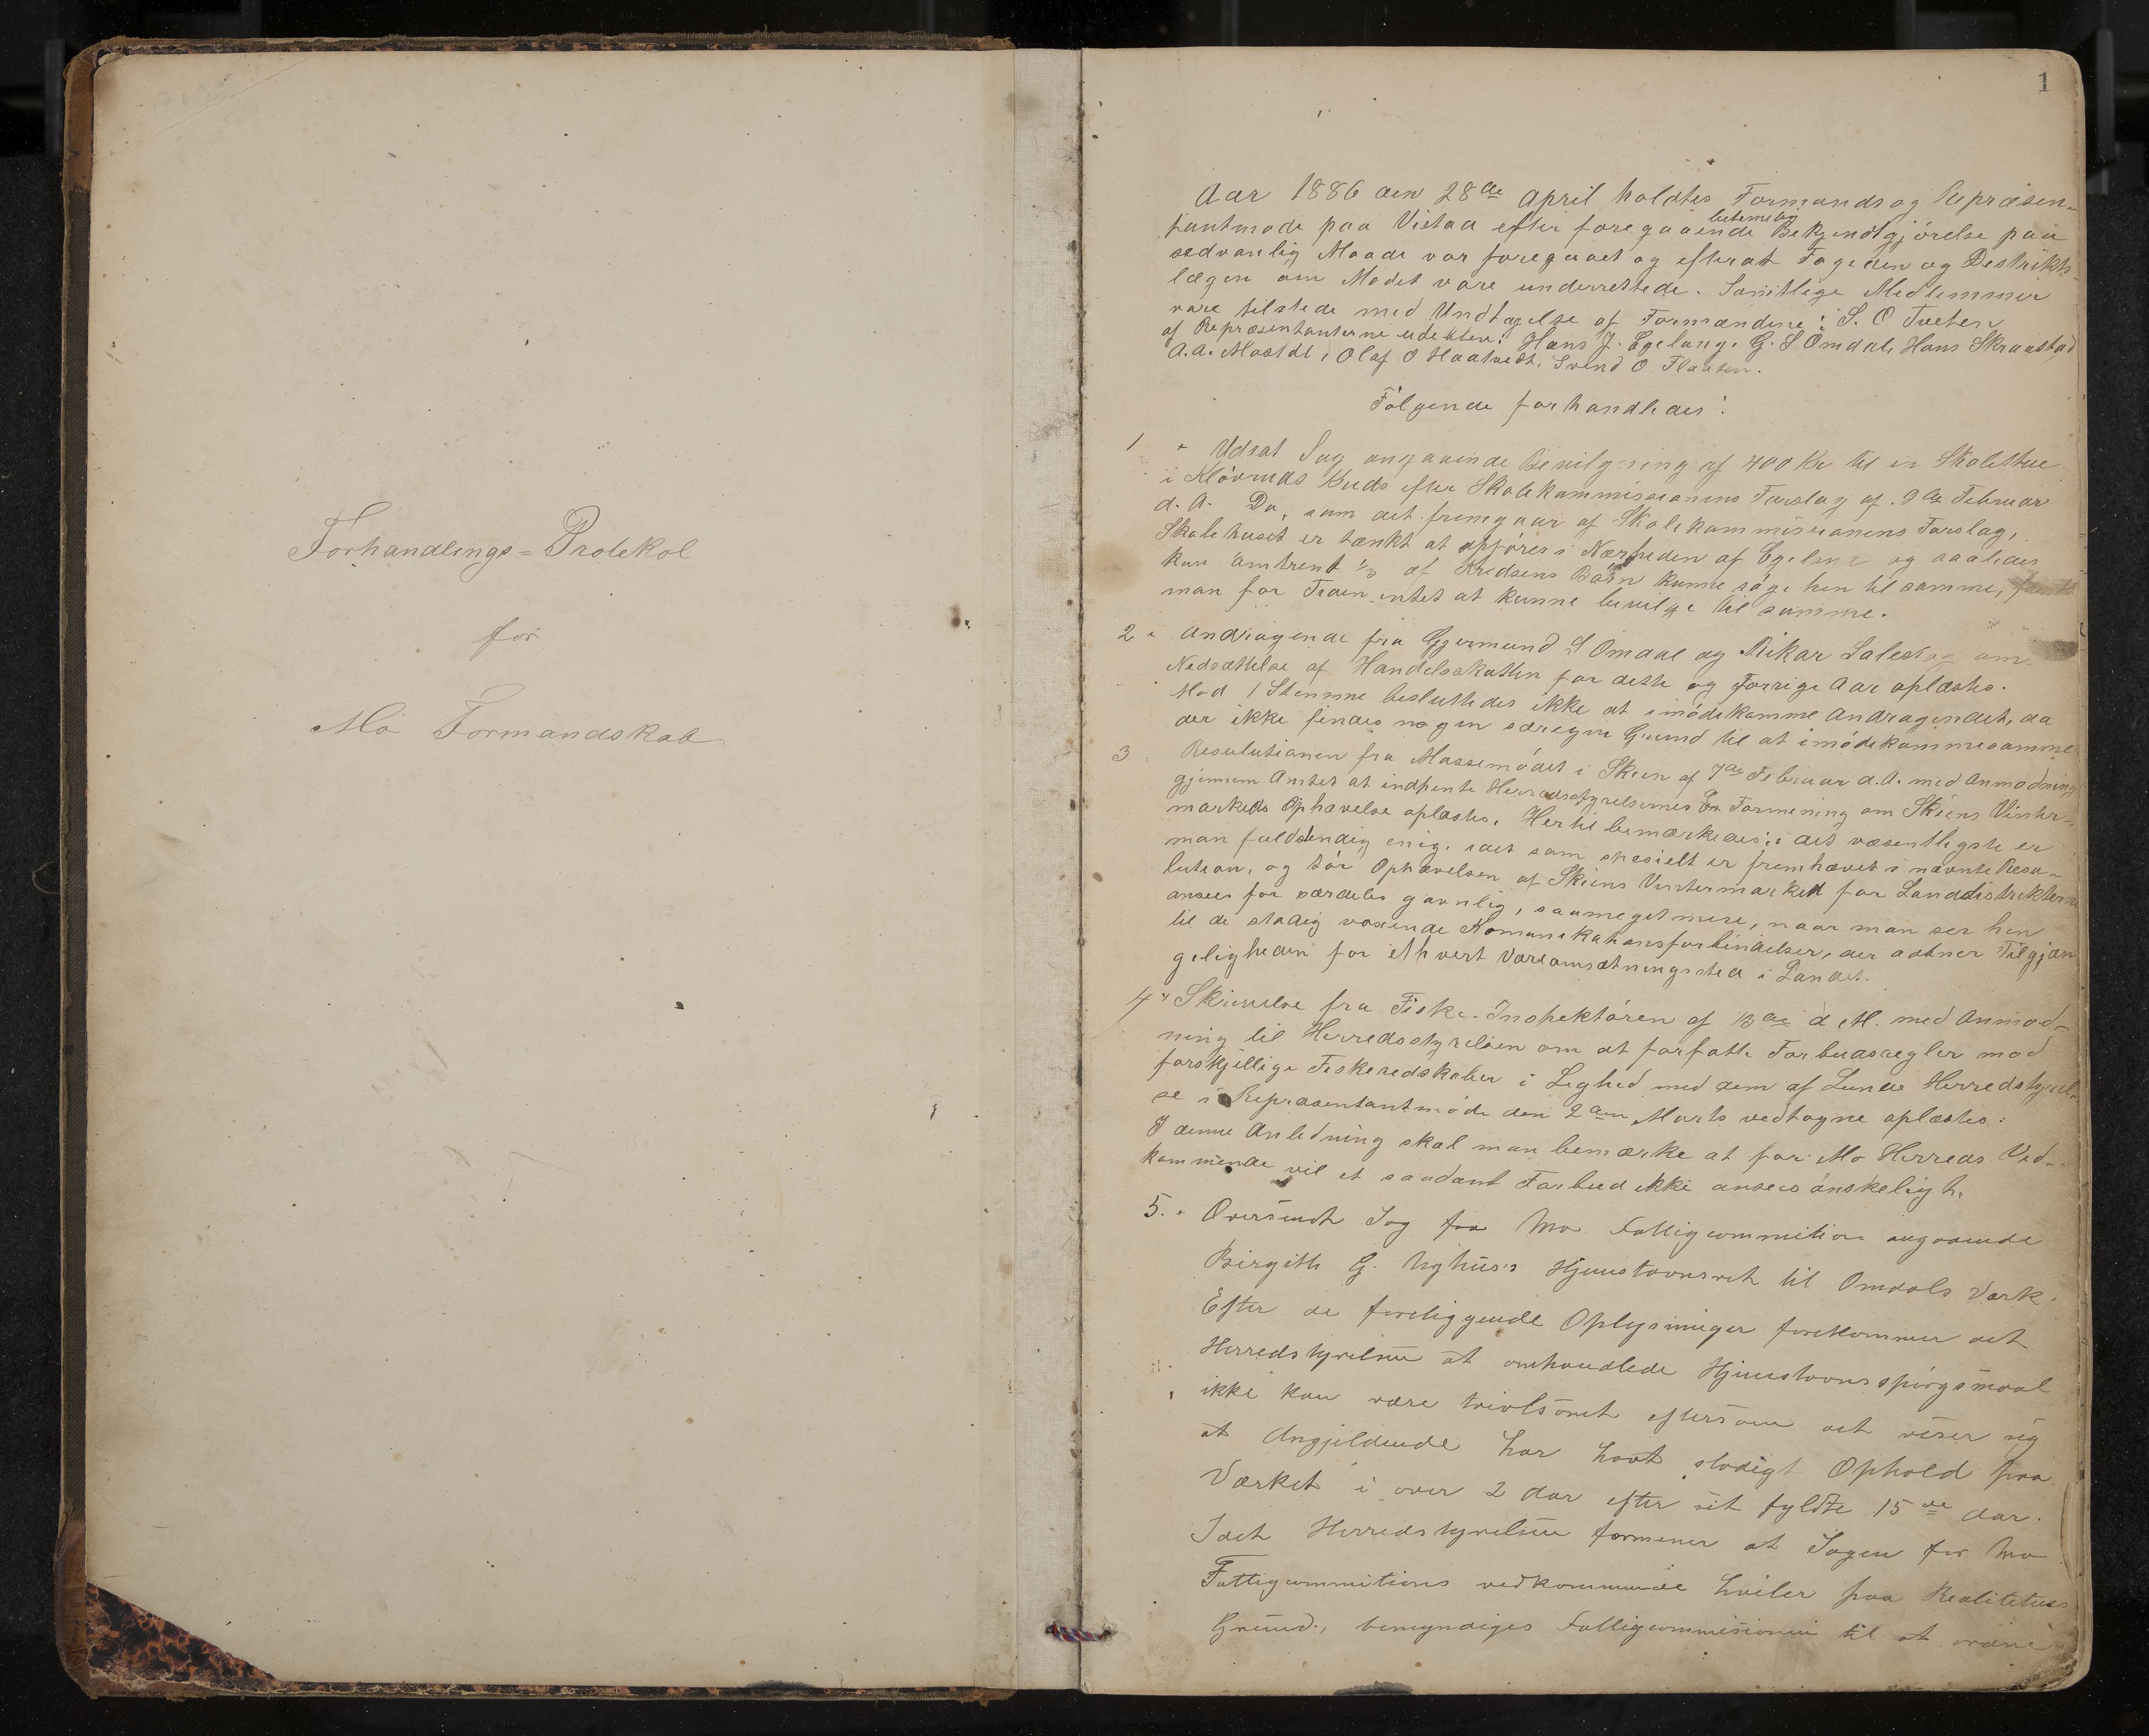 Forhandlings=Protokol
for
Mo Formandskab
1
Aar 1886 den 28de April holdtes Formands og Repræsen-
tantmøde paa Vistad efter foregaaende betimelig Bekjendtgjörelse paa
sedvanlig Maade var foregaaet og efterat Fogeden og Distrikts-
lægen om Mödet vare underrettede. Samtlige Medlemmer
vare tilstede med Undtagelse af Formændene: S. O Tveten
af Repræsentanterne udebleve: Hans J. Egeland, G. S Omdal, Hans Skraastad
A. A. Olaf O Haatvedt, Svend O Flaaten.
Fölgende forhandledes:
1. Udsat Sag angaaende Bevilgning af 400 Kr til en Skolestue
i Klövruds Kreds efter Skolekommissionens Forslag af 9de Februar
d. A. Da, som det fremgaar af Skolekommissionens Forslag,
Skolehuset er tænkt at opföres i Nærheden af Egeland og saaledes
kun omtrent 1/3 af Kredsens Börn kunne söge hen til samme, fandt
man for Tiden intet at kunne bevilge til samme.
2. Andragende fra Gjermund S Omdal og Rikar om
Nedsættelse af Handelsskatten for dette og forrige Aar oplæstes.
Mod 1 Stemme besluttedes ikke at imödekomme Andragendet, da
der ikke findes nogen særegen Grund til at imödekomme samme
3 Resolutionen fra Massemödet i Skien af 7de Februar d. A. med Anmodning
gjennem Amtet at indhente Herredsstyrelsernes Formening om Skiens Vinter-
markeds Ophævelse oplæstes. Hertil bemærkedes: i det væsentligste er
man fuldstendig enig i det som spesielt er fremhævet i nævnte Reso-
lution, og tör Ophævelsen af Skiens Vintermarked for Landdistrikterne
ansees for særdeles gavnlig, saameget mere, naar man ser hen
til de stadig voxende Komunikationsforbindelser, der aabner Tilgjæn
geligheden for ethvert Vareomsætningssted i Landet.
4. Skrivelse fra Fiske-Inspektören af 13de d. M. med Anmod-
ning til Herredsstyrelsen om at forfatte Forbudsregler mod
forskjellige Fiskeredskaber i Lighed med dem af Lunde Herredstyrel-
se i Repræsentantmöde den 2den Marts vedtagne oplæstes:
I denne Anledning skal man bemærke at for Mo Herreds Ved-
kommende vil et saadant Forbud ikke ansees önskeligt.
5. Oversendt Sag fra Mo Fattigcommition angaaende
Birgith G. Nyhus's Hjemstavnsret til Omdals Værk.
Efter de foreliggende Oplysninger forekommer det
Herredstyrelsen at omhandlede Hjemstavnsspörgsmaal
ikke kan være tvivlsomt eftersom det viser sig
at Angjeldende har havt stadigt Ophold paa
Værket i over 2 Aar efter sit fyldte 15de Aar.
Idet Herredstyrelsen formener at Sagen for Mo
Fattigcommitions vedkommende hviler paa Realitetens
Grund, bemyndiges Fattigcommisionen til at ordne